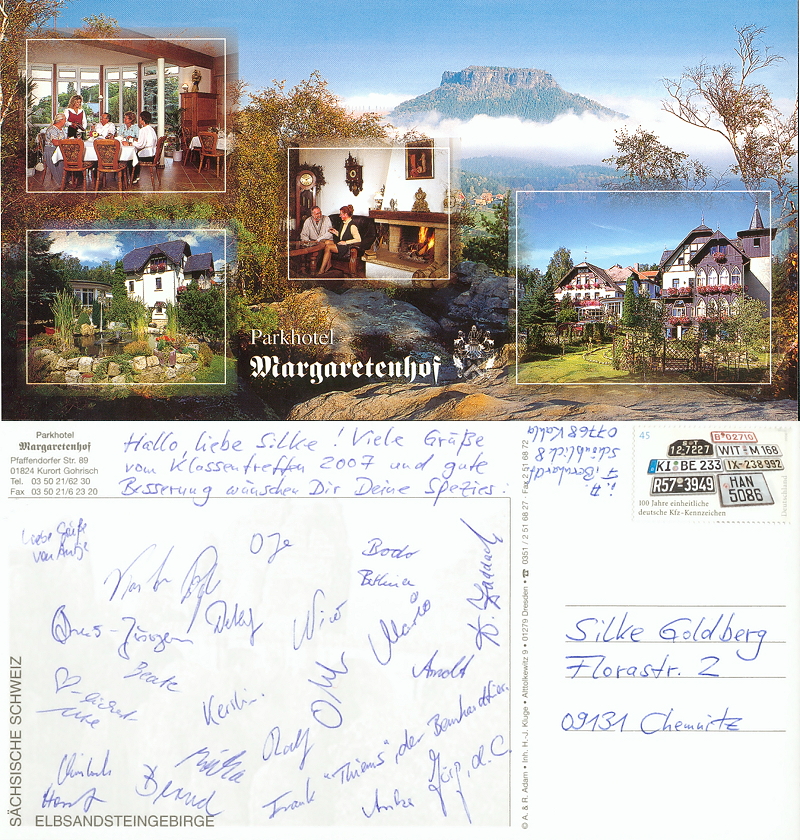 Parkhotel
Margaretenhof
Parkhotel
Margaretenhof
Pfaffendorfer Str. 89
01824 Kurort Gohrisch
Tel. 03 50 21/62 30
Fax 03 50 21/6 23 20
Hallo, liebe Silke! Viele Grüße
vom Klassentreffen 2007 und gute
Besserung wünschen Dir Deine Spezies:
i.A.
T. Bernhardt
schönblick 8
07768 Kahla
45
B·02710
12·7227
WIT·M 168
KI·BE 233
IX-238992
R57·3949
HAN
5086
100 Jahre einheitliche
deutsche Kfz-Kennzeichen
Deutschland
Liebe Grüße
von Antje
Bodo
Bettina
Detlef
Nico
Mario
Beate
Kerstin
Arnold
Ralf
Bernd
Horst
Frank "Thiems", der Bernhardtiner
Anke
Jörg, d. C.
SÄCHSISCHE SCHWEIZ
ELBSANDSTEINGEBIRGE
© A. & R. Adam • Inh. H.-J. Kluge • Alttolkewitz 9 • 01279 Dresden • ☎ 0351 / 2 51 68 27 · Fax 2 51 68 72
Silke Goldberg
Florastr. 2
09131 Chemnitz